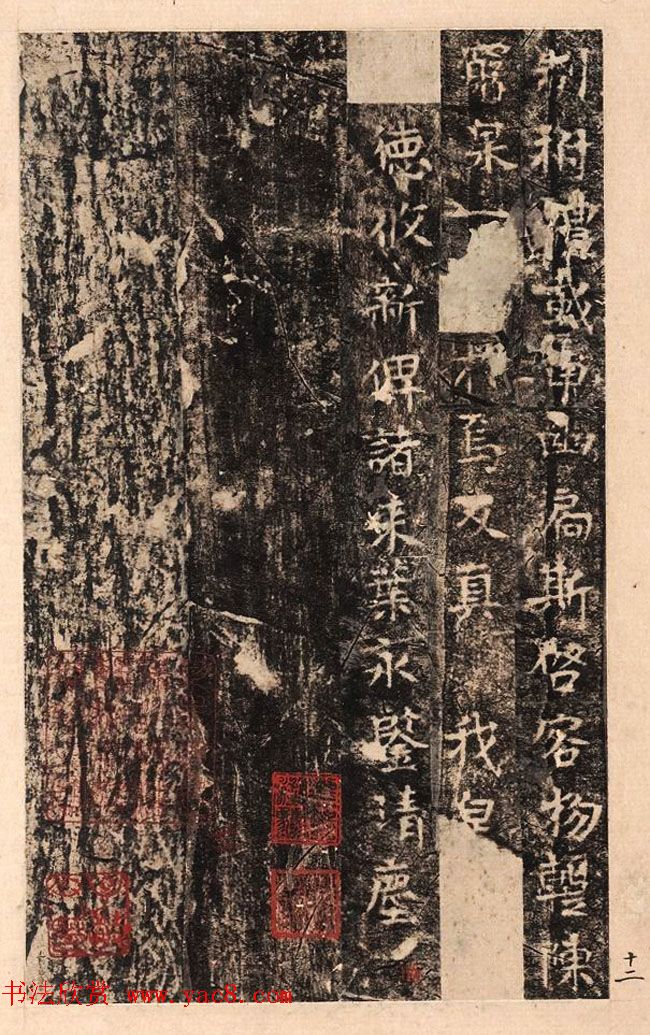 制祔禮函扃斯啓容物蹔陳
泉焉真我皇
德攸新俾諸來葉永鑒清塵
十二
书法欣赏 www.yac8.com